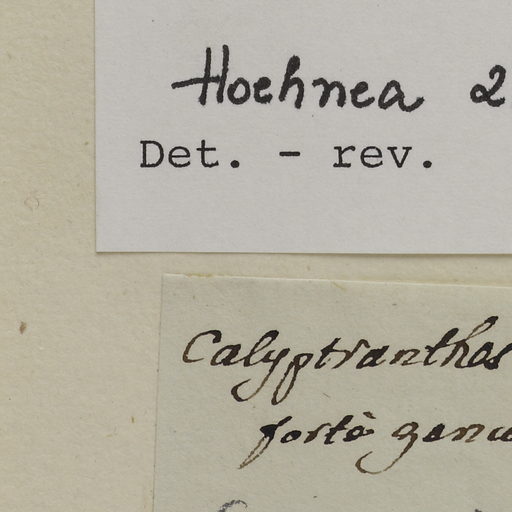 Hoehnea 2
Det. - rev.
Calyptranthos
fortè genu